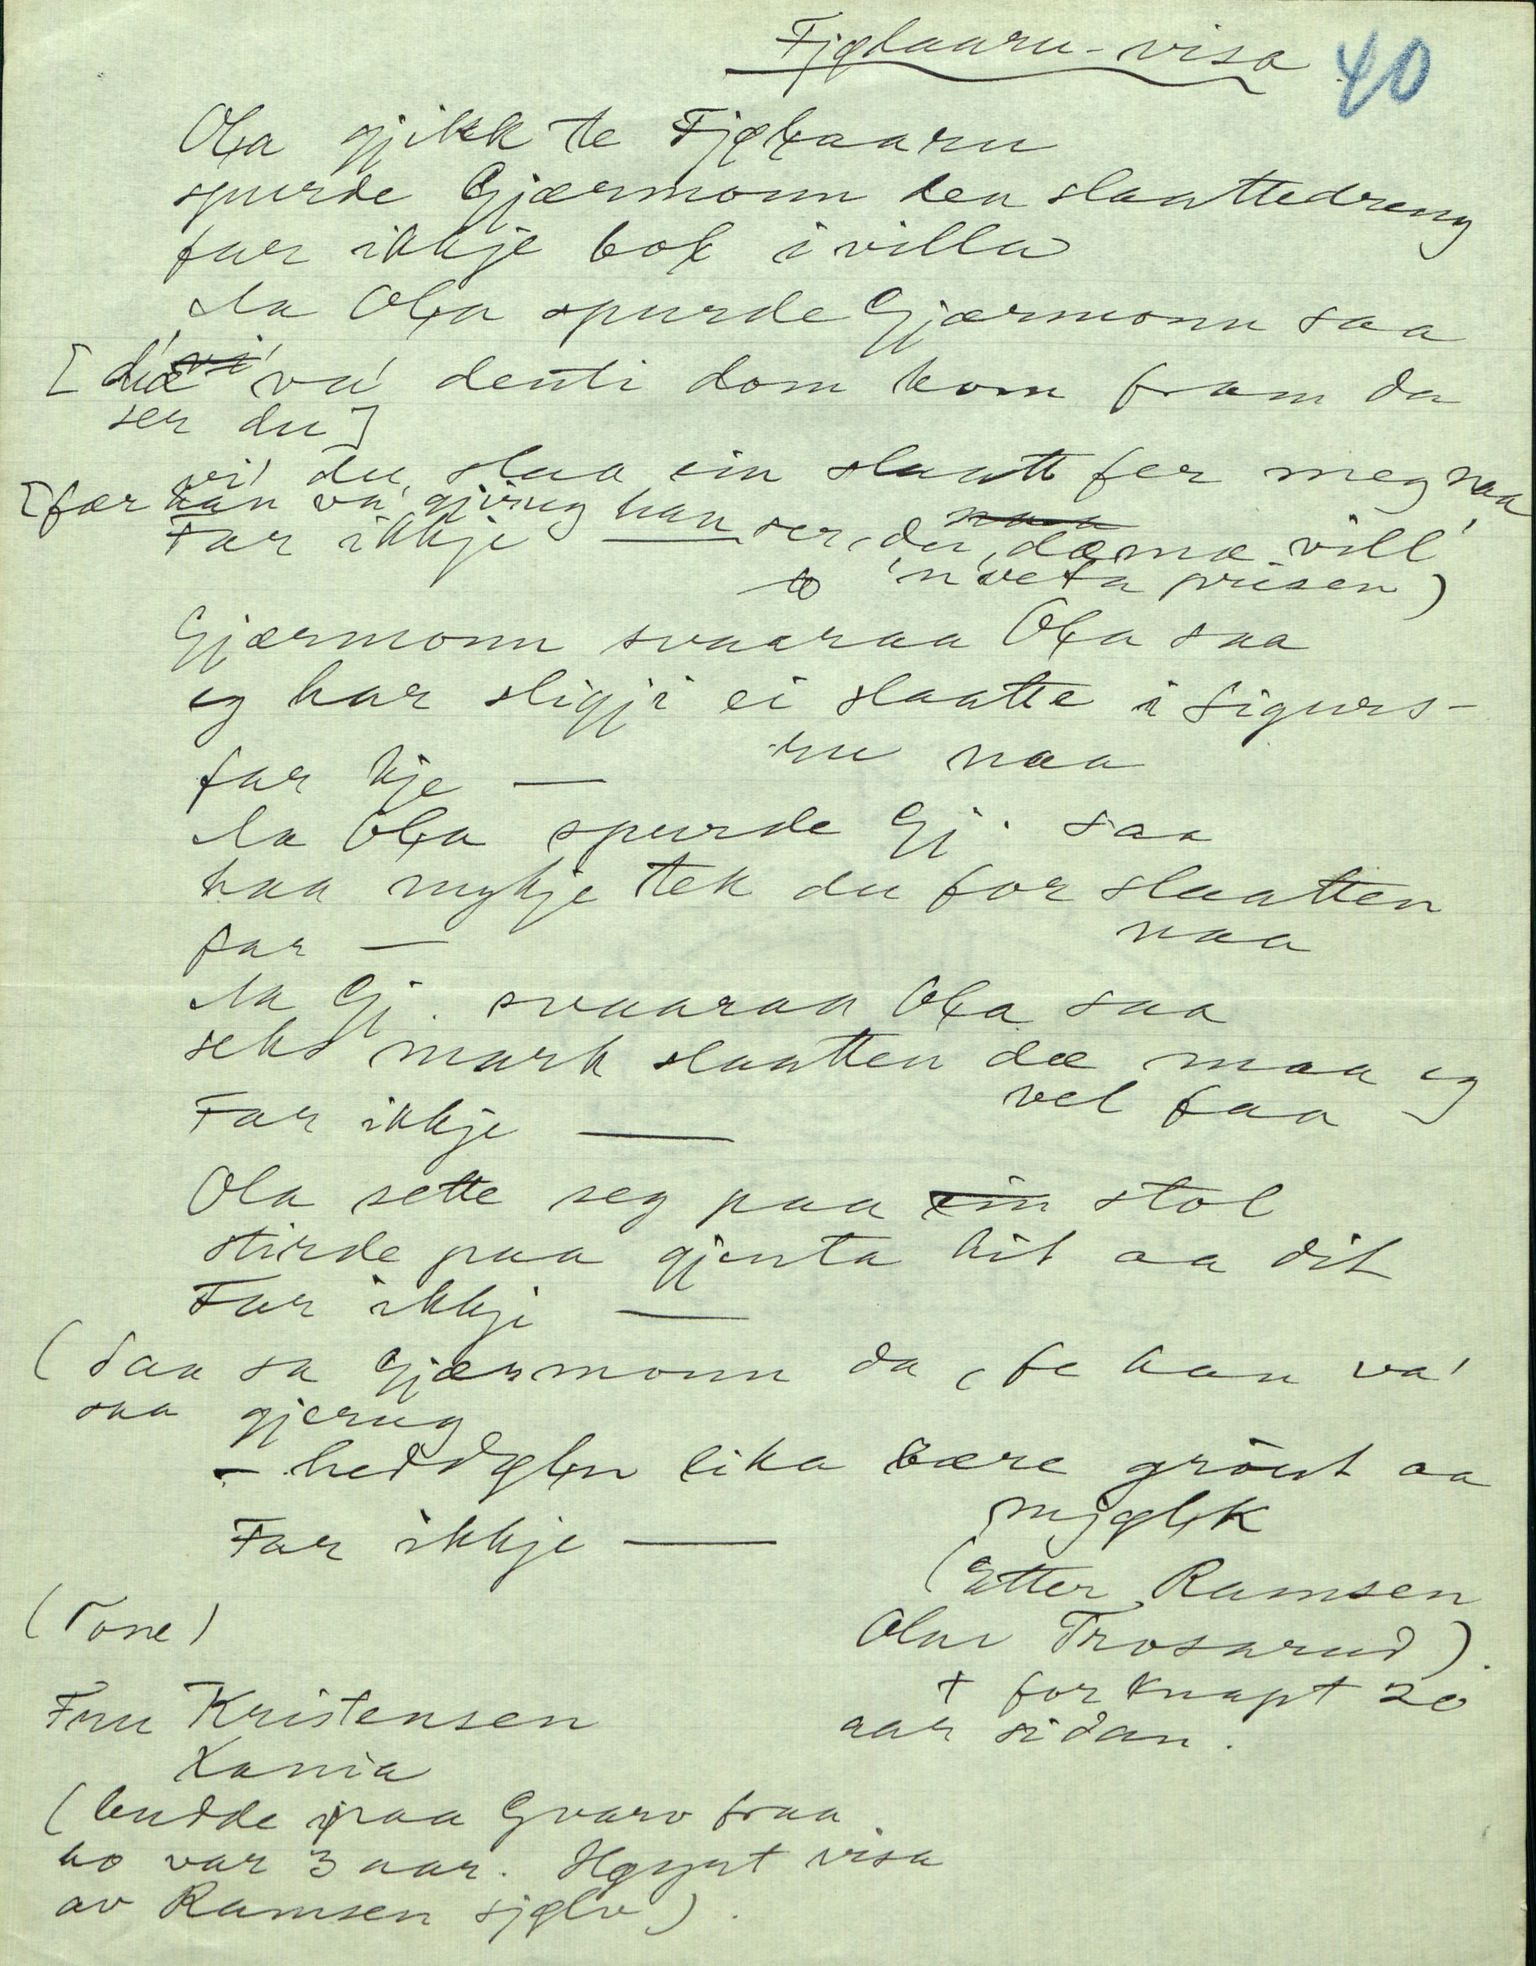 Fjølaaru-visa 40
Oła gjikk te Fjøłaaru
spurde Gjærmonn den slaattedreng
far ikkje bol i villa
Aa Oła spurde Gjærmonn saa
[dæ' va' denti dom kom fram da
ser du]
vi' du slaa ein slaatt fer meg naa
[fær han va' gjerug han ser du, dæmæ vill'
Far ikkje — 'n veta prisen)
Gjærmonn svaaraa Oła saa
eg har sligji ei slaatte i Sigurs-
ru naa
far kje —
Aa Oła spurde Gj. saa
haa mykje tek du for slaatten
naa
far —
Aa Gj. svaaraa Oła saa
seks mark slaatten dæ maa eg
vel faa
Far ikkje —
Ola sette seg paa ein stol
stirde paa gjenta hit aa dit
Far ikkje —
(Saa sa Gjærmonn da, fe han va'
saa gjerug
- heddøłn lika bære gröut aa
mjøłk
Far ikkje —
(Etter Ramsen
Olav Trosarud).
+ for knapt 20
aar sidan.
(Tone)
Fru Kristensen
Xania
(budde paa Gvarv fraa
ho var 3 aar. Høyrt visa
av Ramsen sjølv).